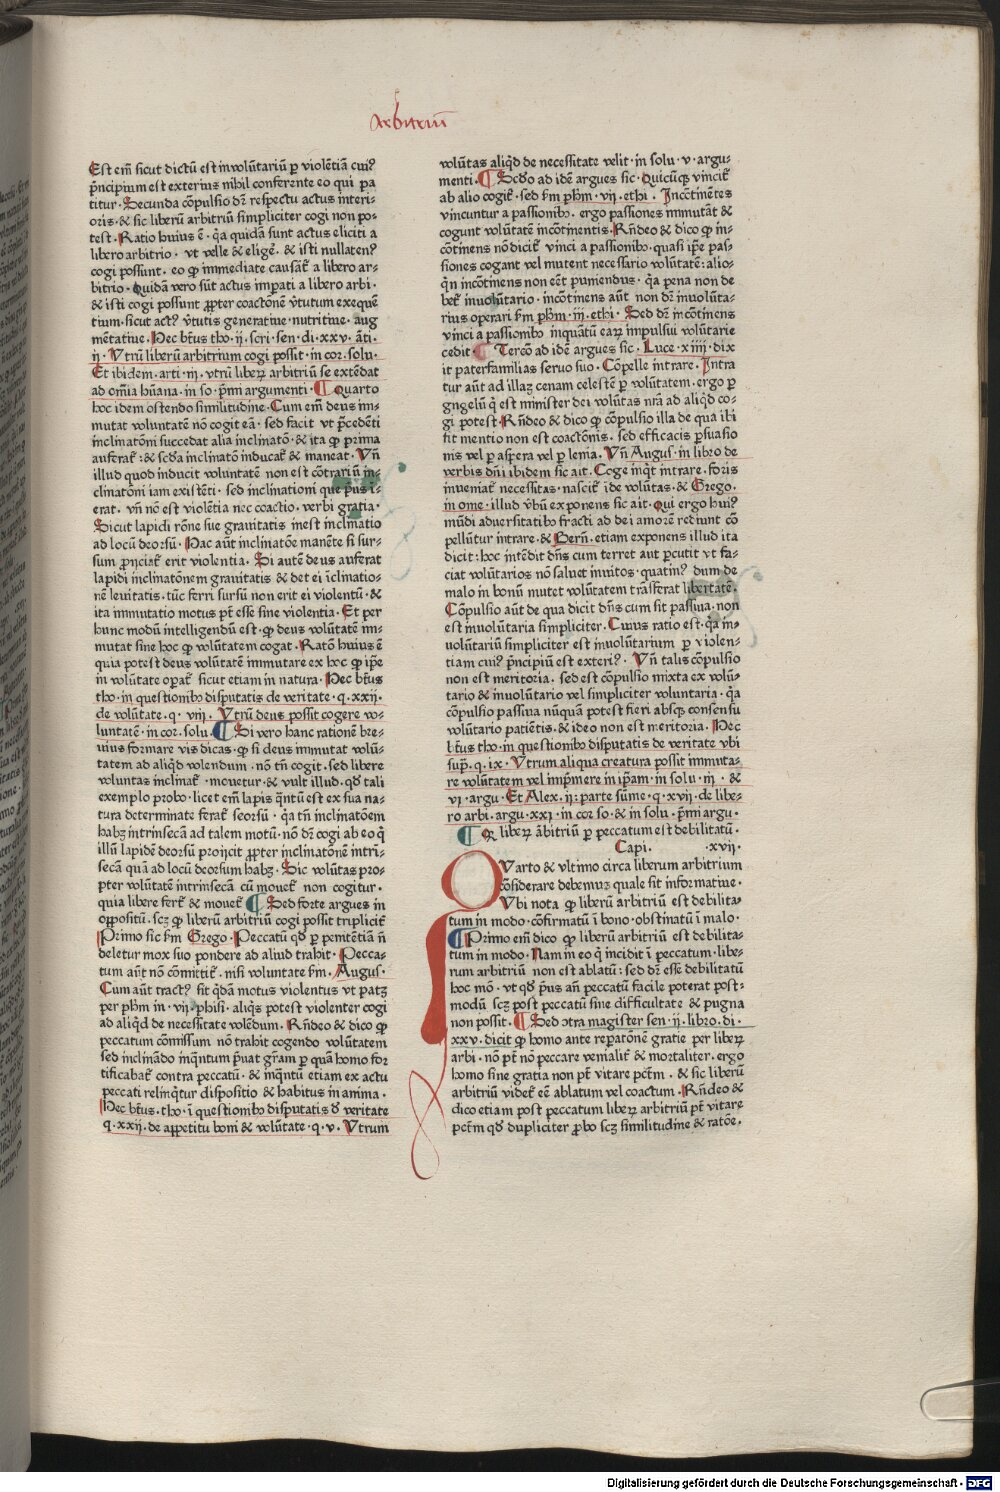 Arbitriū
Est em̄ sicut dictū est inuolūtariū ꝑ violētiā cui⁹
p̄ncipium est exterius nihil conferente eo qui pa
titur. Secunda cōpulsio dr̄ respectu actus interi-
oris. & sic liberū arbitriū simpliciter cogi non po-
test. Ratio huius ē. q̄a quidā sunt actus eliciti a
libero arbitrio. vt velle & elige. & isti nullaten⁹
cogi possunt. eo ꝙ immediate causāt̄ a libero ar-
bitrio. Quidā vero sūt actus impati a libero arbi.
& isti cogi possunt ꝓpter coactōnē v̄tutum exequē
tium. sicut act⁹ v̄tutis generatiue. nutritiue. aug
mētatiue. Hec bt̄us tho. ij. scri. sen. di. xxv. āti.
ij. Vtrū liberū arbitrium cogi possit. in cor. solu.
Et ibidem. arti. iij. vtrū liberꝫ arbitriū se extēdat
ad om̄ia hūana. in so. p̄mi argumenti. ¶ Quarto
hoc idem ostendo similitudine. Cum em̄ deus im-
mutat voluntatē nō cogit eā. sed facit vt p̄cedēti
inclinatōni succedat alia inclinatō. & ita ꝙ prima
auferat̄. & sc̄da inclinatō inducat̄ & maneat. Vn̄
illud quod inducit voluntatē non est cōtrariū in-
clinatōni iam existēti. sed inclinationi que p̄us i-
erat. vn̄ nō est violētia nec coactio. verbi gratia.
Sicut lapidi rōne sue grauitatis inest inclinatio
ad locū deorsū. Hac aūt inclinatōe manēte si sur-
sum ꝓijciat̄ erit violentia. Si autē deus auferat
lapidi inclinatōnem grauitatis & det ei īclinatio-
nē leuitatis. tūc ferri sursū non erit ei violentū. &
ita immutatio motus pt̄ esse sine violentia. Et per
hunc modū intelligendū est. ꝙ deus volūtatē im-
mutat sine hoc ꝙ volūtatem cogat. Ratō huius ē
quia potest deus volūtatē immutare ex hoc ꝙ ip̄e
in volūtate oꝑat̄ sicut etiam in natura. Hec bt̄us
tho. in questionibꝰ disputatis de veritate. q. xxij.
de volūtate. q. viij. Vtrū deus possit cogere vo-
luntatē. in cor. solu. ¶ Si vero hanc rationē bre-
uius formare vis dicas. ꝙ si deus immutat volū-
tatem ad aliqd̄ volendum. nō tn̄ cogit. sed libere
voluntas inclinat̄. mouetur. & vult illud. qd̄ tali
exemplo probo. licet em̄ lapis q̄ntū est ex sua na-
tura determinate ferat̄ seorsū. q̄a tn̄ inclinatōem
habꝫ intrinsecā ad talem motū. nō dr̄ cogi ab eo q̄
illū lapidē deorsū proijcit ꝓpter inclinatōnē intri-
secā quā ad locū deorsum habꝫ. Sic volūtas pro-
pter volūtatē intrinsecā cū mouet̄ non cogitur.
quia libere fert̄ & mouet̄ ¶ Sed forte argues in
oppositū. scꝫ ꝙ liberū arbitriū cogi possit triplicit̄
Primo sic fm̄ Grego. Peccatū qd̄ ꝑ penitētiā n̄
deletur mox suo pondere ad aliud trahit. Pecca-
tum aūt nō cōmittit̄. nisi voluntate fm̄. Augus.
Cum aūt tract⁹ sit q̄dā motus violentus vt patꝫ
per phm̄ in. vij. phisi. aliq̄s potest violenter cogi
ad aliqd̄ de necessitate volēdum. Rn̄deo & dico ꝙ
peccatum cōmissum nō trahit cogendo volūtatem
sed inclināndo inq̄ntum p̄uat gr̄am ꝑ quā homo for
tificabat̄ contra peccatū. & inq̄ntū etiam ex actu
peccati relinq̄tur dispositio & habitus in anima.
Hec bt̄us. tho. ī questionibꝰ disputatis d̄ veritate
q. xxij. de appetitu boni & volūtate. q. v. Vtrum
volūtas aliqd̄ de necessitate velit. in solu. v. argu-
menti. ¶ Scd̄o ad idē argues sic. Quicūqꝫ vincit̄
ab alio cogit̄. sed fm̄ phm̄. vij. ethi. Incōtinētes
vincuntur a passionibꝰ. ergo passiones immutāt &
cogunt volūtatē incōtinentis. Rn̄deo & dico ꝙ in-
cōtinens nō dicit̄ vinci a passionibꝰ. quasi ip̄e pas-
siones cogant vel mutent necessario volūtatē. alio-
q̄n incōtinens non eēt puniendus. q̄a pena non de
bet̄ inuolūtario. incōtinens aūt non dr̄ inuolūta-
rius operari fm̄ phm̄. iij. ethi. Sed dr̄ incōtinens
vinci a passionibꝰ inquātū eaꝝ impulsui volūtarie
cedit. ¶ Tercō ad idē argues sic. Luce. xiiij. dix
it paterfamilias seruo suo. Cōpelle intrare. Intra
tur aūt ad illaꝫ cenam celestē ꝑ volūtatem. ergo ꝑ
gngelū q̄ est minister dei volūtas nr̄a ad aliqd̄ co-
gi potest. Rn̄deo & dico ꝙ cōpulsio illa de qua ibi
fit mentio non est coactōnis. sed efficacis ꝑsuasio
nis vel ꝑ aspera vel ꝑ lenia. Vn̄ Augus. in libro de
verbis dn̄i ibidem sic ait. Coge inq̄t intrare. foris
inueniat̄ necessitas. nascit̄ īde volūtas. & Grego.
in ome. illud v̄bū exponens sic ait. Qui ergo hui⁹
mūdi aduersitatibꝰ fracti ad dei amorē redeunt cō
pellūtur intrare. & Bern̄. etiam exponens illud ita
dicit: hoc intēdit dn̄s cum terret aut ꝑcutit vt fa-
ciat volūtarios nō saluet inuitos. quatin⁹ dum de
malo in bonū mutet volūtatem trāsferat libertatē.
Cōpulsio aūt de qua dicit dn̄s cum sit passiua. non
est inuolūtaria simpliciter. Cuius ratio est. q̄a in-
uolūtariū simpliciter est inuolūtarium ꝑ violen-
tiam cui⁹ p̄ncipiū est exteri⁹. Vn̄ talis cōpulsio
non est meritoria. sed est cōpulsio mixta ex volū-
tario & inuolūtario vel simpliciter voluntaria. q̄a
cōpulsio passiua nūquā potest fieri absqꝫ consensu
volūtario patiētis. & ideo non est meritoria. Hec
bt̄us tho. in questionibꝰ disputatis de veritate vbi
sup̄. q. ix. Vtrum aliqua creatura possit immuta-
re volūtatem vel imp̄mere in ip̄am. in solu. iij. &
vi. argu. Et Alex. ij: parte sūme. q. xvij. de libe-
ro arbi. argu. xxi. in cor so. & in solu. p̄mi argu.
¶ Qꝛ liberꝫ ārbitriū ꝑ peccatum est debilitatū.
Capi. .xvij.
QVarto & vltimo circa liberum arbitrium
cōsiderare debemuꝫ quale sit informatiue.
Vbi nota ꝙ liberū arbitriū est debilita-
tum in modo. cōfirmatū ī bono. obstinatū ī malo.
¶ Primo em̄ dico ꝙ liberū arbitriū est debilita-
tum in modo. Nam in eo q̄ incidit ī peccatum. libe-
rum arbitriū non est ablatū. sed dr̄ esse debilitatū
hoc mō. vt qd̄ p̄us an̄ peccatū facile poterat post-
modū scꝫ post peccatū sine difficultate & pugna
non possit. ¶ Sed ꝯtra magister sen. ij. libro. di.
xxv. dicit ꝙ homo ante reparatōnē gratie per liberꝫ
arbi. nō pt̄ nō peccare venialit̄ & mortaliter. ergo
homo sine gratia non pt̄ vitare pct̄m. & sic liberū
arbitriū videt̄ eē ablatum vel coactum. Rn̄deo &
dico etiam post peccatum liberꝫ arbitriū pt̄ vitare
pct̄m qd̄ dupliciter ꝓbo scꝫ similitudine & ratōe.
Digitalisierung gefördert durch die Deutsche Forschungsgemeinschaft - DFG